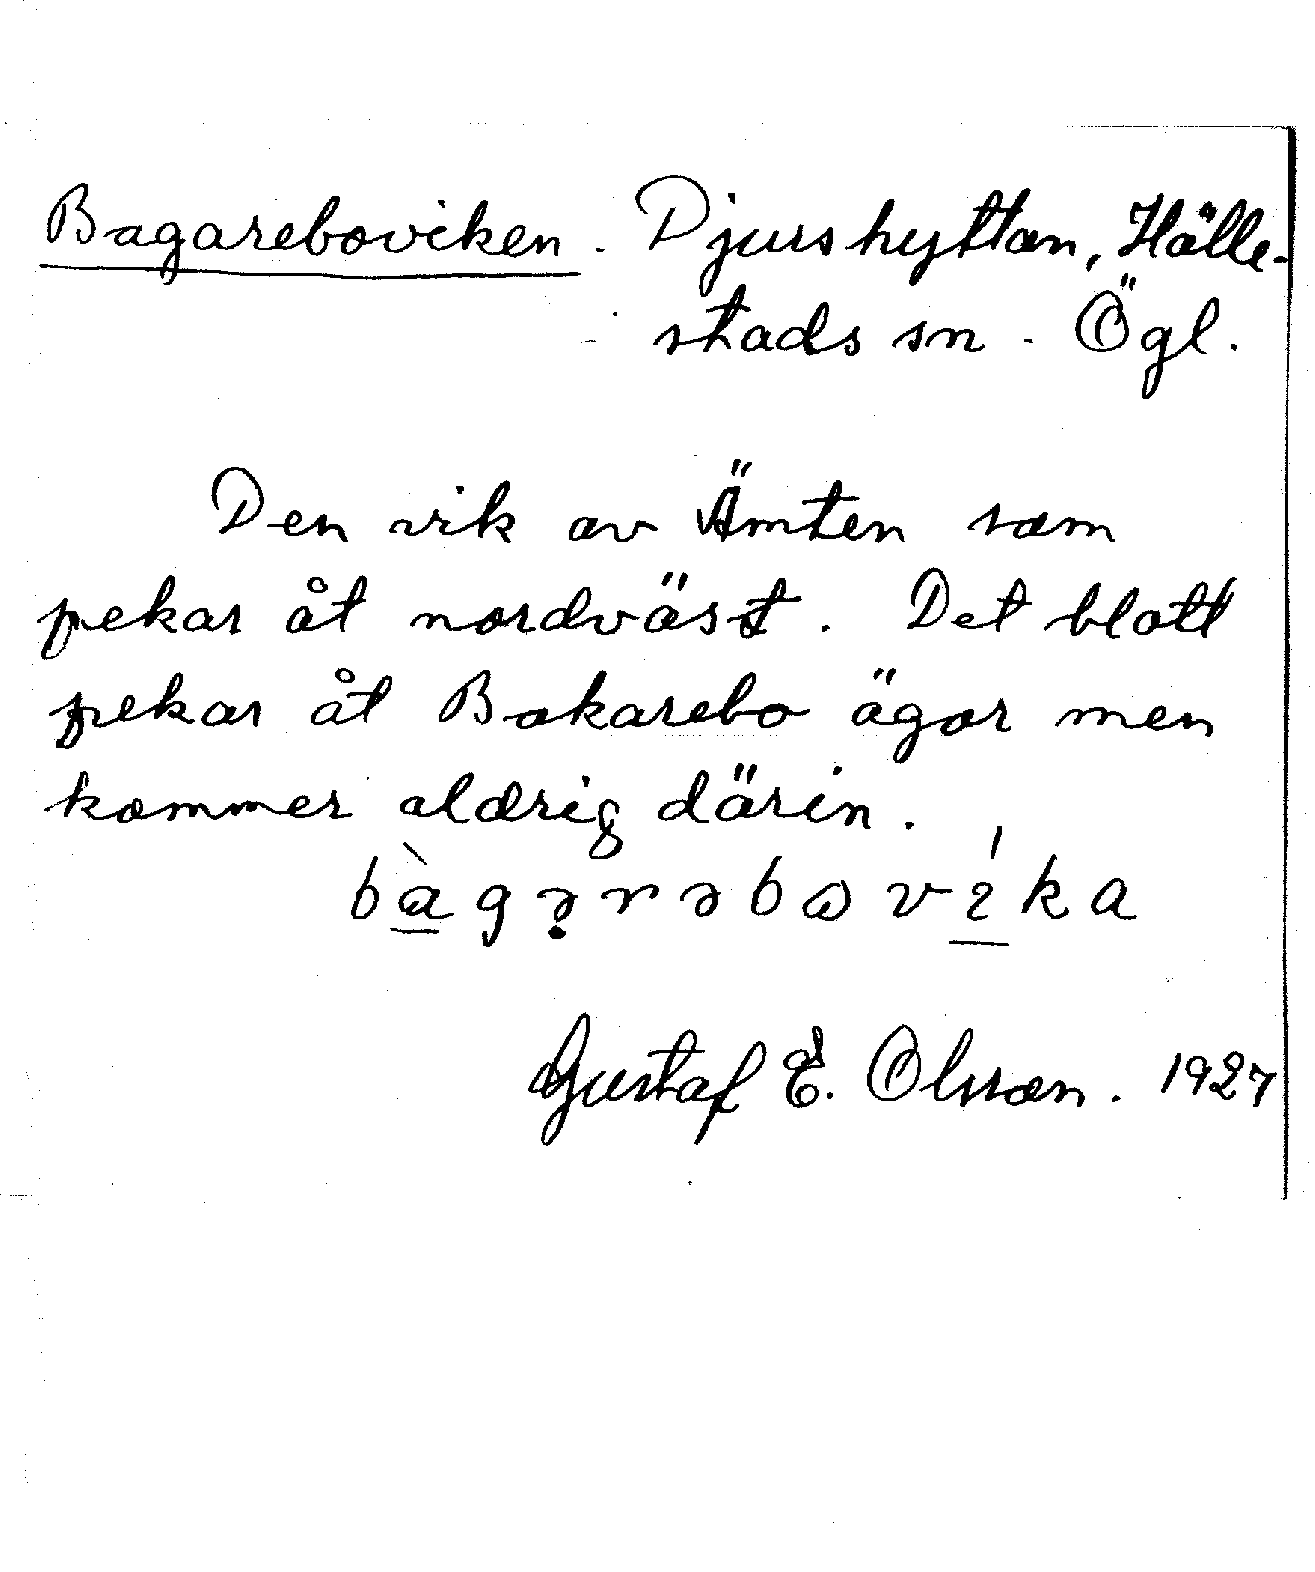 Bagareboviken. Djurshyttan, Hälle-
stads sn. Ögl.
Den vik av Ämten som
pekar åt nordväst. Det blott
pekar åt Bakarebo ägor men
kommer aldrig därin.
bàgərəbωvíka
Gustaf E. Olsson. 1927